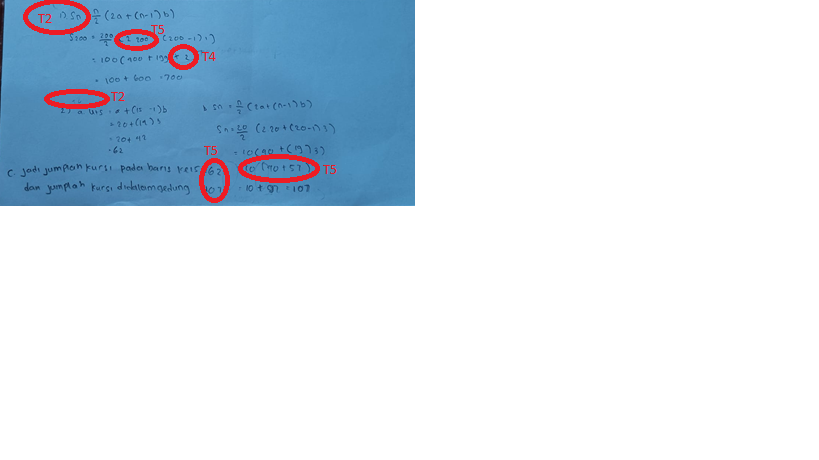 T2 1) Sn = n/2 (2a + (n-1) b)
T5
S200 = 200/2 (2.200 (200-1) i)
= 100 (400 + 199 + 2 T4
= 100 + 600 = 700
T2
a. U15 = a + (15-1) b
= 20 + (14) 3
= 20 + 42
= 62
Sn = n/2 (2a + (n-1) b)
Sn = 20/2 (2.20 + (20-1) 3)
= 10 (40 + (19) 3)
T5
10 (40 + 57) T5
= 10 + 97 = 107
C. Jadi jumlah kursi pada baris ke 15 62
dan jumlah kursi didalam gedung 107